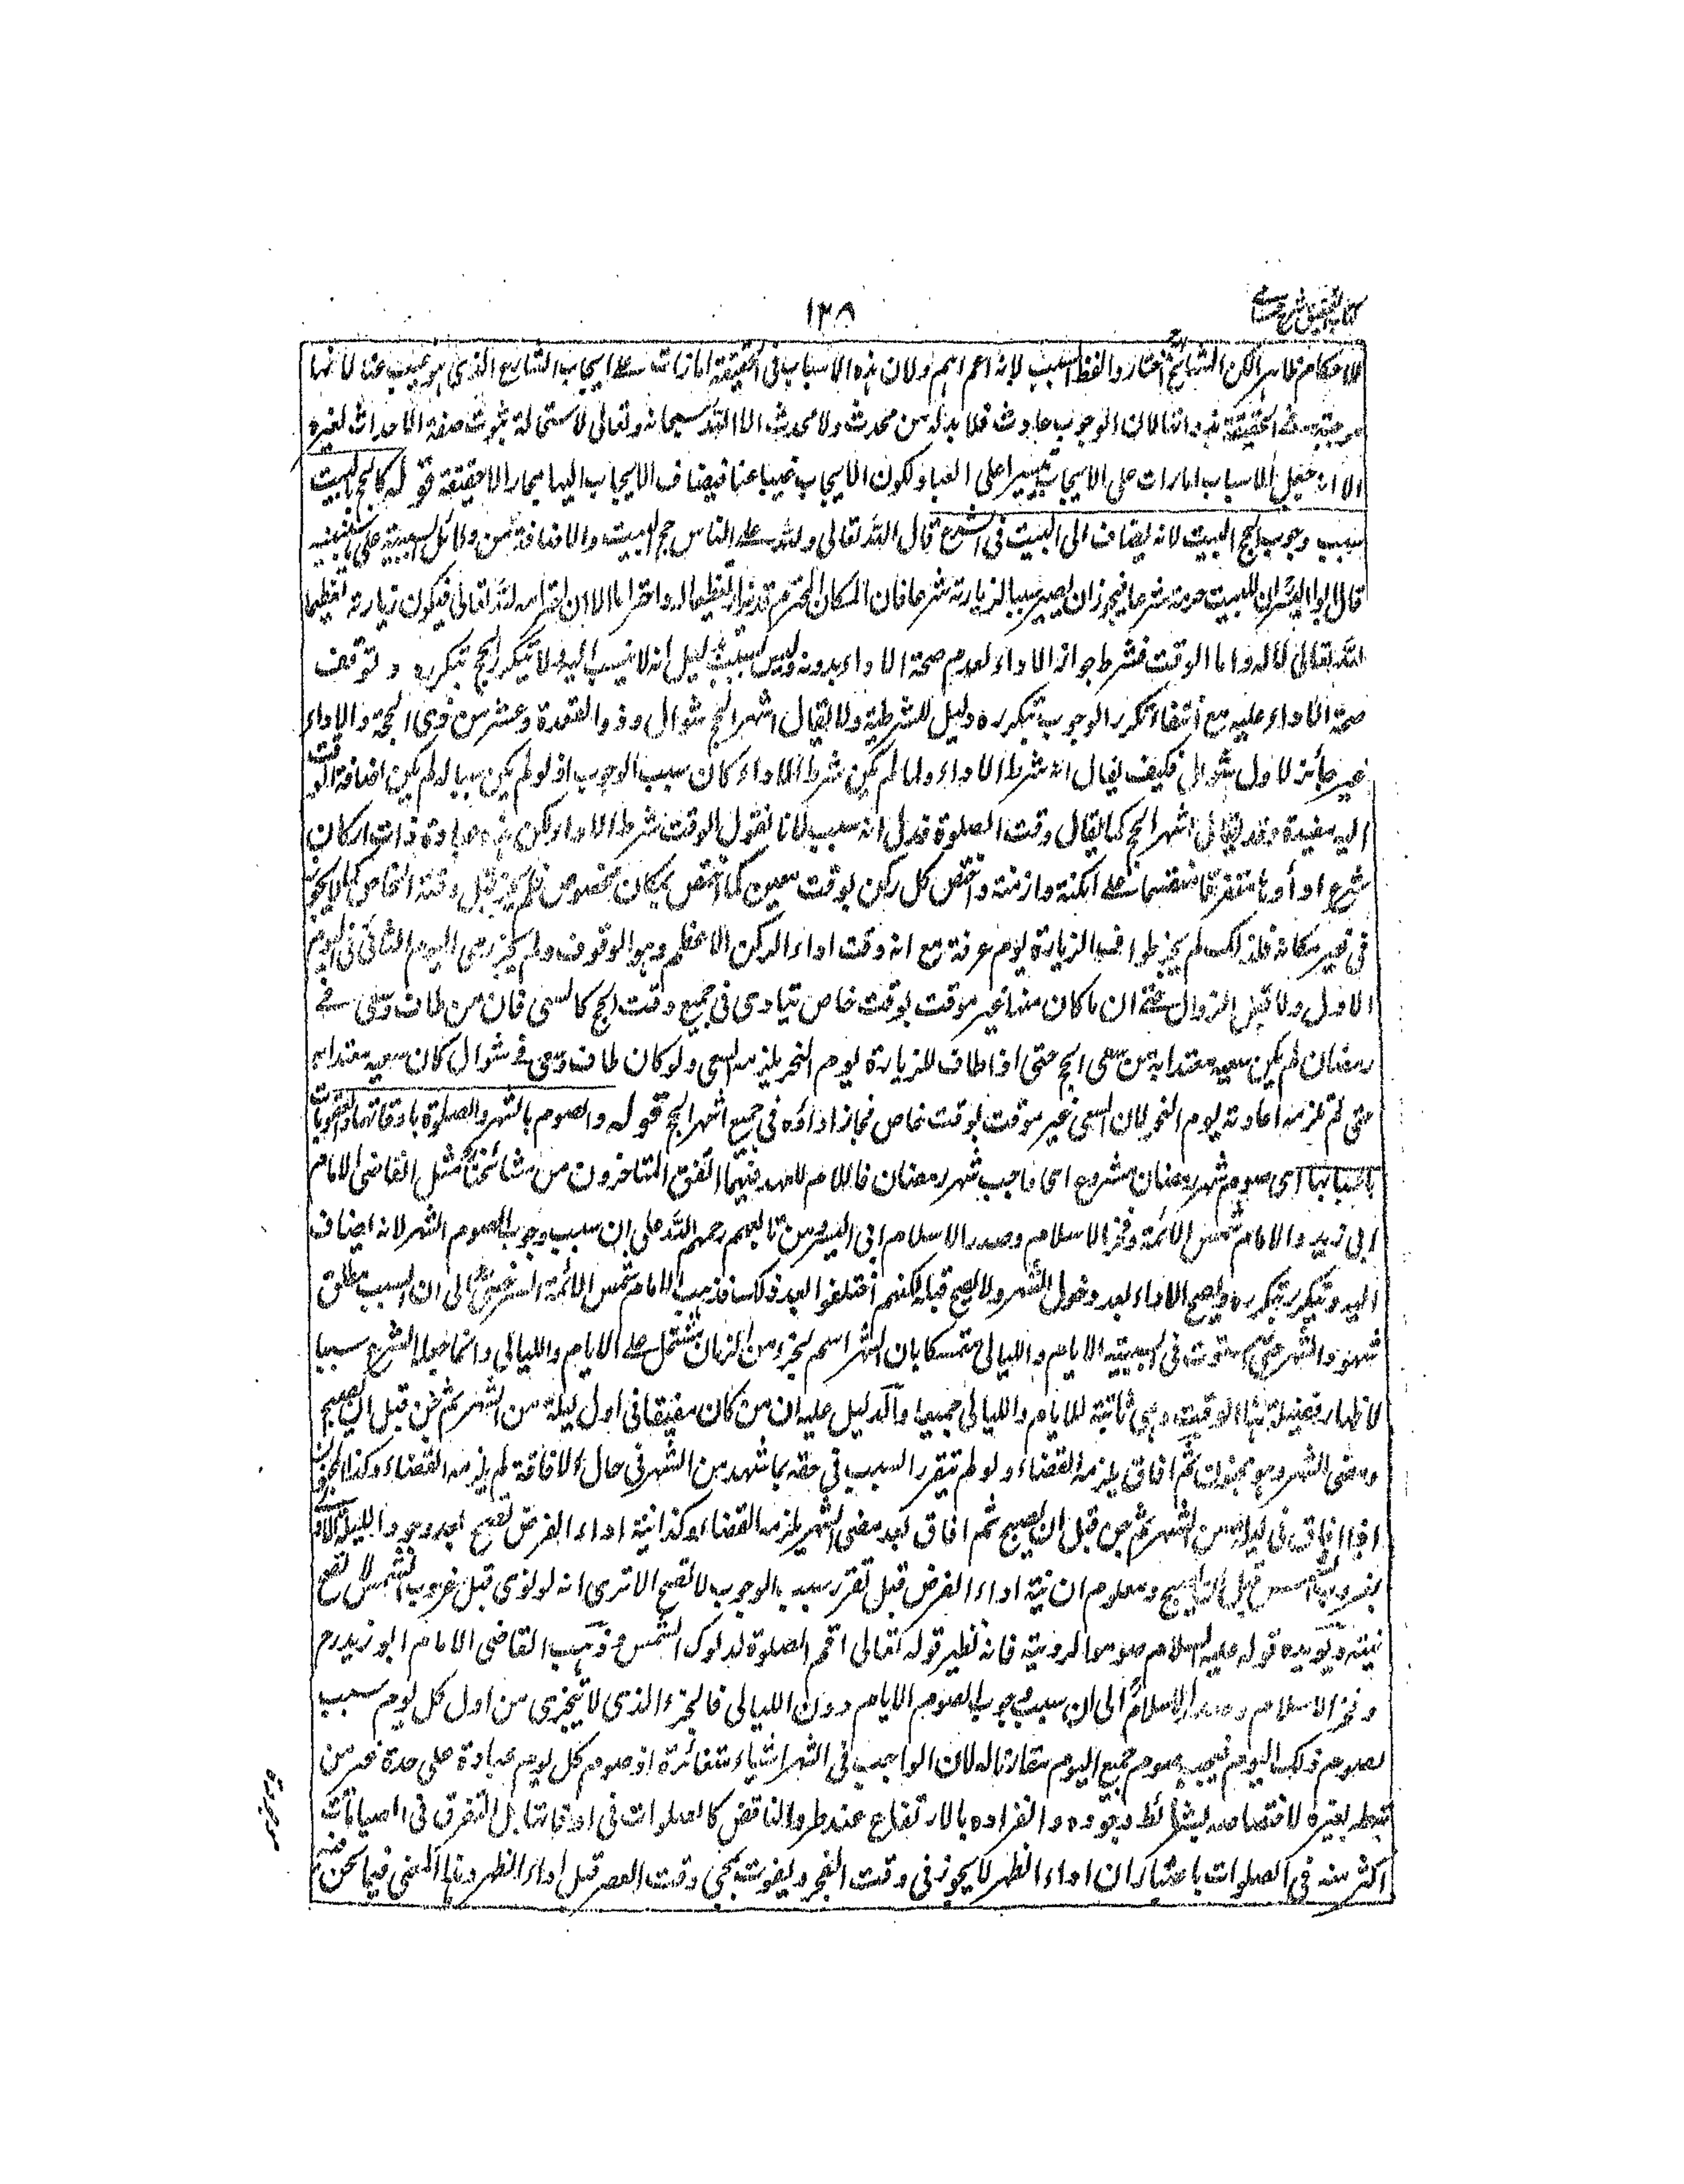 كتاب التحقيق شرح حسامي
١٣٨
للاحكام ظاهرا لكن المشايخ اختاروا لفظ السبب لانه اعم اهم ولان هذه الاسباب فى الحقيقة امارات على ايجاب الشارع الذى هو غيب عنا لا انها
موجبة فى الحقيقة بذواتها لان الوجوب حادث فلا بد له من محدث ولا محدث الا الله سبحانه وتعالى لاستحالة ثبوت صفة الاحداث لغيره
الا انه جعل الاسباب امارات على الايجاب تيسيرا على العباد لكون الايجاب غيبا عنا فيضاف الايجاب اليها مجازا لا حقيقة قوله كالحج بالبيت
سبب وجوب الحج البيت لانه يضاف الى البيت فى الشرع قال الله تعالى ولله على الناس حج البيت والاضافة من دلائل السببية على ما
قال ابو اليسر ان للبيت حرمة شرعا فيجوز ان يصير سببا لزيارته شرعا فان المكان المحترم قد يزار تعظيما له واحتراما الا ان احترامه لله تعالى فيكون زيارته تعظيما
لله تعالى لا له واما الوقت فشرط جواز الاداء لعدم صحة الاداء بدونه وليس بسبب بدليل انه لا ينسب اليه ولا يتكرر الحج بتكرره وتوقف
صحة الاداء عليه مع انتفاء تكرر الوجوب بتكرره دليل للشرطية ولا يقال اشهر الحج شوال وذو القعدة وعشر من ذى الحجة والاداء
غير جائز لاول شوال فكيف يقال انه شرط الاداء ولما لم يكن شرط الاداء كان سبب الوجوب اذ لو لم يكن سببا له لم يكن اضافة الوقت
اليه مفيدة وقد يقال اشهر الحج كما يقال وقت الصلوة فدل انه سبب لانا نقول الوقت شرط الاداء لكن هذه عبادة ذات اركان
شرع اداؤها متفرقا منقسما على امكنة وازمنة واختص كل ركن بوقت معين كما اختص بمكان مخصوص فلم يجز قبل وقته الخاص كما لا يجوز
فى غير مكانه فلذلك لم يجز طواف الزيارة يوم عرفة مع انه وقت اداء الركن الاعظم وهو الوقوف ولم يجز رمى اليوم الثانى فى اليوم
الاول ولا قبل الزوال حتى ان ما كان منها غير موقت بوقت خاص يتادى فى جميع وقت الحج كالسعى فان من طاف وسعى فى
رمضان لم يكن سعيه معتدا به من سعى الحج حتى اذا طاف للزيارة يوم النحر يلزمه السعى ولو كان طاف وسعى فى شوال كان سعيه معتدا به
حتى لم تلزمه اعادته يوم النحر لان السعى غير موقت بوقت خاص فجاز اداؤه فى جميع اشهر الحج قوله والصوم بالشهر والصلوة باوقاتها والعقوبات
باسبابها اى صوم شهر رمضان مشروع اى واجب شهر رمضان فاللام للعهد فيهما اتفق المتاخرون من مشائخنا مثل القاضى الامام
ابى زيد والامام شمس الائمة وفخر الاسلام وصدر الاسلام ابى اليسر ومن تابعهم رحمهم الله على ان سبب وجوب الصوم الشهر لانه اضاف
اليه وتيكرر بتكرره ويصح الاداء بعد دخول الشهر ولا يصح قبله لكنهم اختلفوا بعد ذلك فذهب الامام شمس الائمة السرخسى الى ان السبب مطلق
شهود الشهر حتى استوت فى السببية الايام والليالى متمسكا بان الشهر اسم لجزء من الزمان يشتمل على الايام والليالي وانما جعله الشرع سببا
لاظهار فضيلة هذا الوقت وهى ثابتة للايام والليالى جميعا والدليل عليه ان من كان مفيقا فى اول ليلة من الشهر ثم جن قبل ان يصبح
ومضى الشهر وهو مجنون ثم افاق يلزمه القضاء ولو لم تيقرر السبب فى حقه بما شهد من الشهر فى حال الافاقة لم يلزمه القضاء وكذا المجنون
اذا افاق فى ليلة من الشهر ثم جن قبل ان يصبح ثم افاق بعد مضى الشهر يلزمه القضاء وكذا نية اداء الفرض تصح بعد وجود الليلة الاولى
بغروب الشمس قبل ان يصبح ومعلوم ان نية اداء الفرض قبل تقرر سبب الوجوب لا تصح الا ترى انه لو نوى قبل غروب الشمس لا تصح
نيته ويؤيده قوله عليه السلام صوموا لرويته فانه نظير قوله تعالى اقم الصلوة لدلوك الشمس وذهب القاضى الامام ابو زيد رح
وفخر الاسلام وصدر الاسلام الى ان سبب وجوب الصوم الايام دون الليالى فالجزء الذى لا يتجزى من اول كل يوم سبب
لصوم ذلك اليوم فيجب صوم جميع اليوم مقارنا له لان الواجب فى الشهر اشياء متغائرة اذ صوم كل يوم عبادة على حدة غير مرتبط
بغيره لاختصاصه بشرائط وجوده وانفراده بالارتفاع عند طرو الناقض كالصلوات فى اوقاتها بل التفرق فى الصيامات
اكثر منه فى الصلوات باعتبار ان اداء الظهر لا يجوز فى وقت الفجر ويفوت بمجى وقت العصر قبل اداء الظهر وهذا المعنى فيما نحن فيه